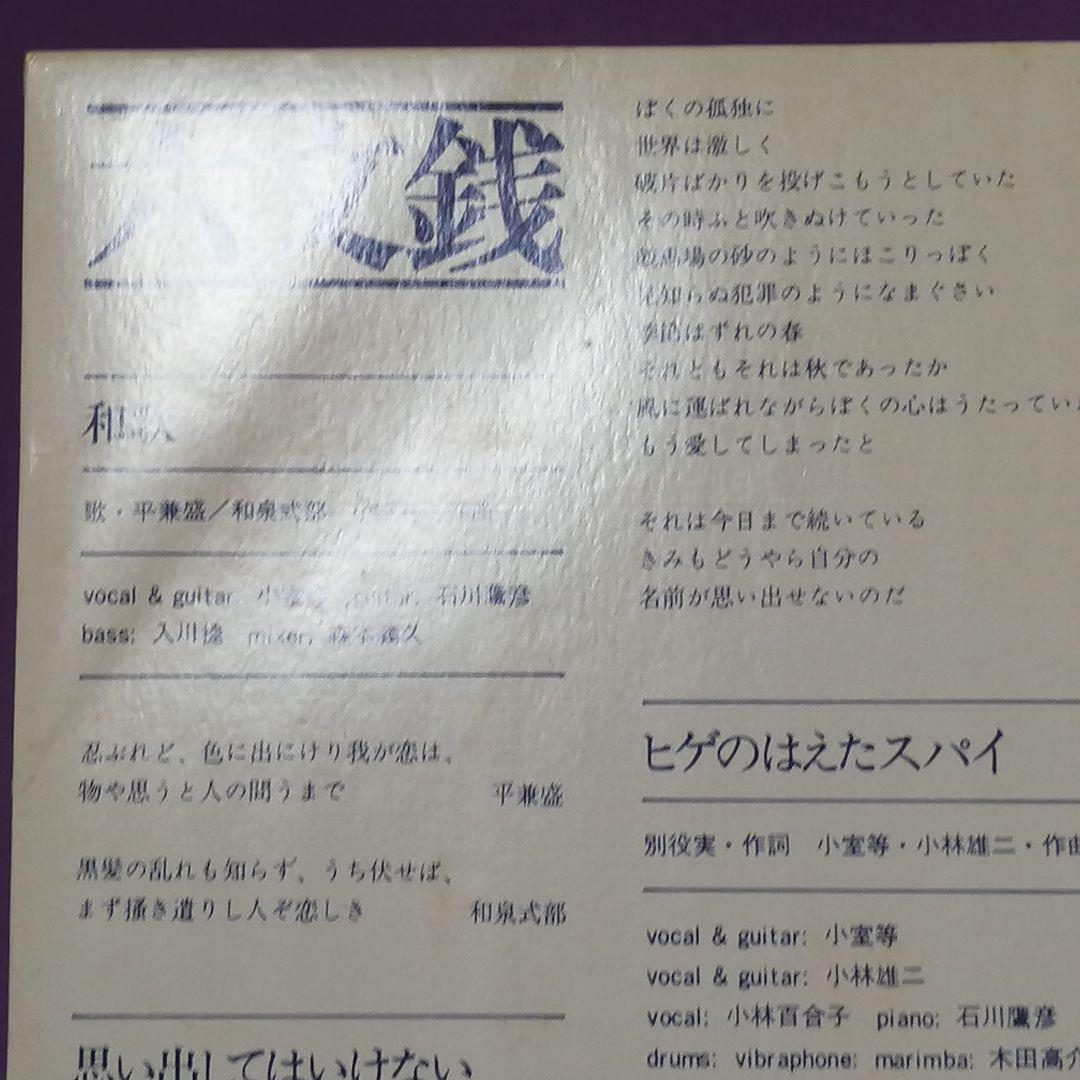 六文銭
和歌
歌・平兼盛／和泉式部
vocal & guitar: 小室等 guitar: 石川鷹彦
bass: 入川捷 mixer:
忍ぶれど、色に出にけり我が恋は、
物や思うと人の問うまで 平兼盛
黒髪の乱れも知らず、うち伏せば、
まず掻き遣りし人ぞ恋しき 和泉式部
思い出してはいけない
ぼくの孤独に
世界は激しく
破片ばかりを投げこもうとしていた
その時ふと吹きぬけていった
競馬場の砂のようにほこりっぽく
見知らぬ犯罪のようになまぐさい
季節はずれの春
それともそれは秋であったか
風に運ばれながらぼくの心はうたってい
もう愛してしまったと
それは今日まで続いている
きみもどうやら自分の
名前が思い出せないのだ
ヒゲのはえたスパイ
別役実・作詞 小室等・小林雄二・作曲
vocal & guitar: 小室等
vocal & guitar: 小林雄二
vocal: 小林百合子 piano: 石川鷹彦
drums: vibraphone: marimba: 木田高介